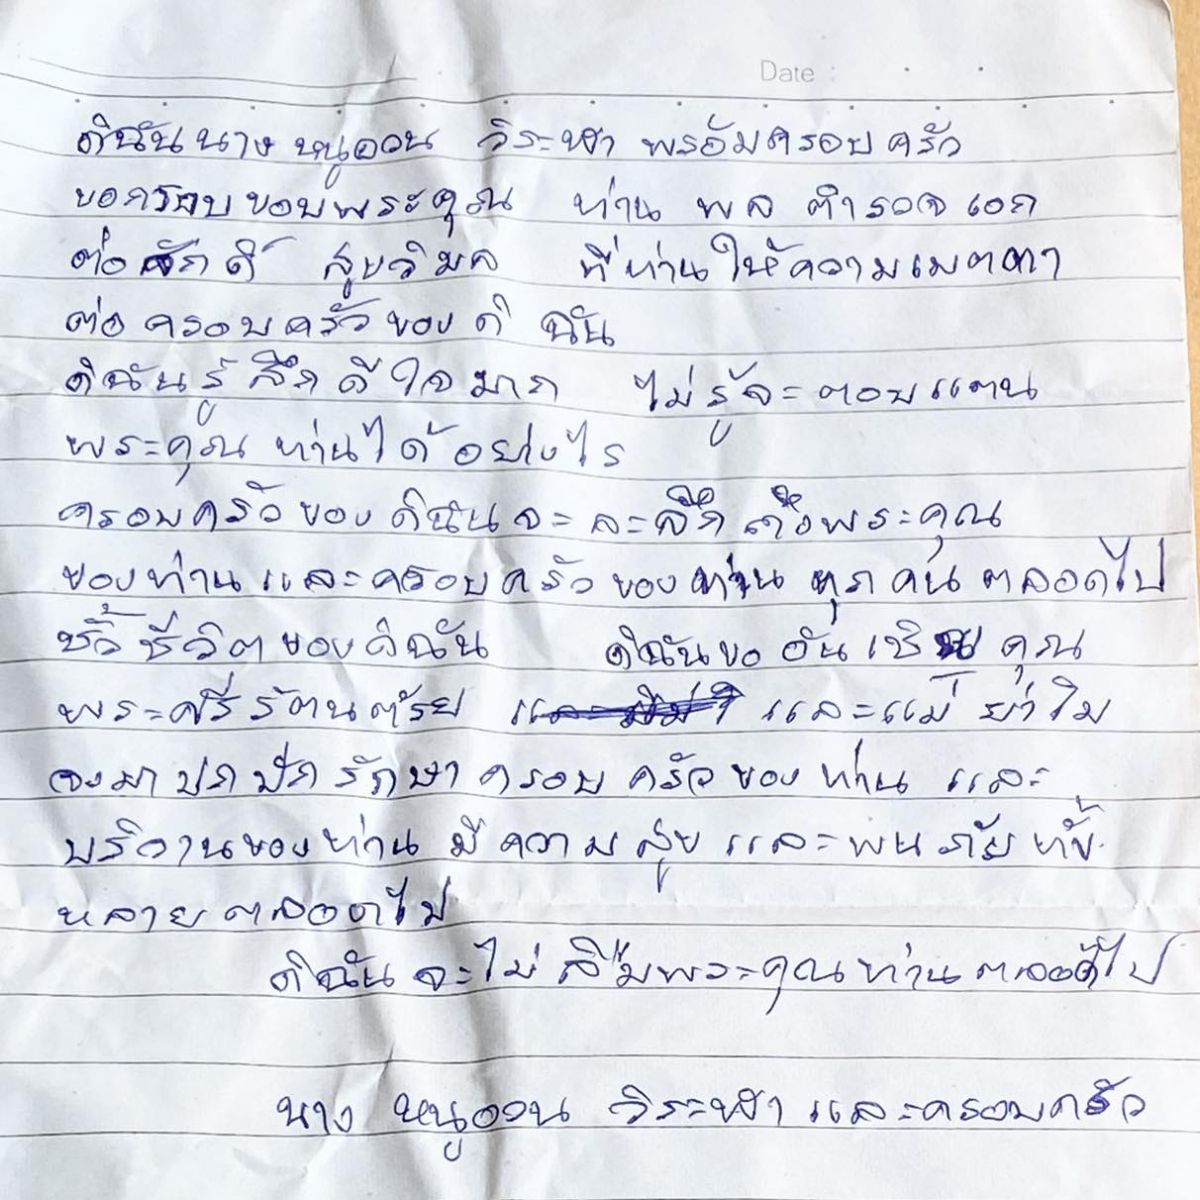 Date :
ดิฉันนาง หนูออน วิระหา พรอ้มครอบครัว
ขอกราบขอบพระคุณ ท่าน พล ตำรวจเอก
ต่อศักดิ์ สุขวิมล ที่ท่านให้ความเมตตา
ต่อครอบครัวของดิฉัน
ดิฉันรู้สึกดีใจมาก ไม่รู้จะตอบแตน
พระคุณท่านได้อย่างไร
ครอบครัวของดิฉันจะละลึกถึงพระคุณ
ของท่านและครอบครัวของท่านทุกคนตลอดไป
ชั้วชีวิตของดิฉัน ดิฉันขออันเชิญคุณ
พระศรีรัตนตรัย และแม่ย่าโม
จงมาปกปักรักษาครอบครัวของท่าน และ
บริวานของท่าน มีความสุข และพ้นภัยทั้ง
หลายตลอดไป
ดิฉันจะไม่ลืมพระคุณท่านตลอดไป
นาง หนูออน วิระหา และครอบครัว